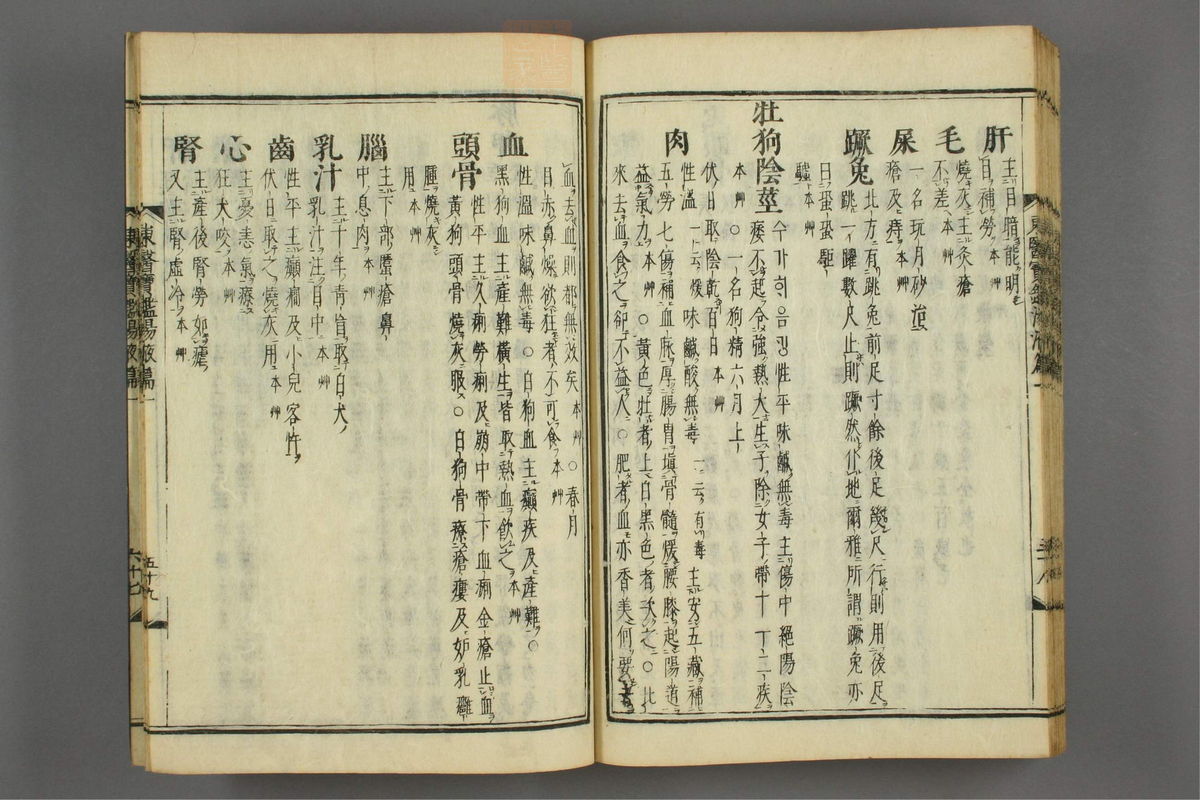 肝
主目暗能明
目補勞本艸
毛
燒灰主灸瘡
不差本艸
屎
一名玩月砂治
瘡及痔本艸
蹶兔
北方有跳兔前足寸餘後足幾尺行則用後足
跳一躍數尺止則蹶然仆地爾雅所謂蹶兔亦
曰蛩蛩駏
驉本艸
牡狗陰莖
수가희음경性平味鹹無毒主傷中絕陽陰
痿不起令強熱大生子除女子帶下十二疾
本艸○一名狗精六月上
伏日取陰乾百日本艸
肉
性溫一云煖味鹹酸無毒一云有毒主安五藏補
五勞七傷補血脈厚腸胃塡骨髓煖腰膝起陽道
益氣力本艸○黃色牡者上白黑色者次之○比
來去血食之却不益人○肥者血亦香美何要
血去血則都無效矣本艸○春月
目赤鼻燥欲狂者不可食本艸
血
性溫味鹹無毒○白狗血主癲疾及產難○
黑狗血主產難橫生皆取熱血飲之本艸
頭骨
性平主久痢勞痢及崩中帶下血痢金瘡止血
黃狗頭骨燒灰服○白狗骨療瘡瘻及妬乳癰
腫燒灰
用本艸
腦
主下部䘌瘡鼻
中息肉本艸
乳汁
主十年青盲取白犬
乳汁注目中本艸
齒
性平主癲癎及小兒客忤
伏日取之燒灰用本艸
心
主憂恚氣療
狂犬咬本艸
腎
主產後腎勞如瘧
又主腎虛冷本艸
東醫寶鑑湯液篇一
五十九
六十七